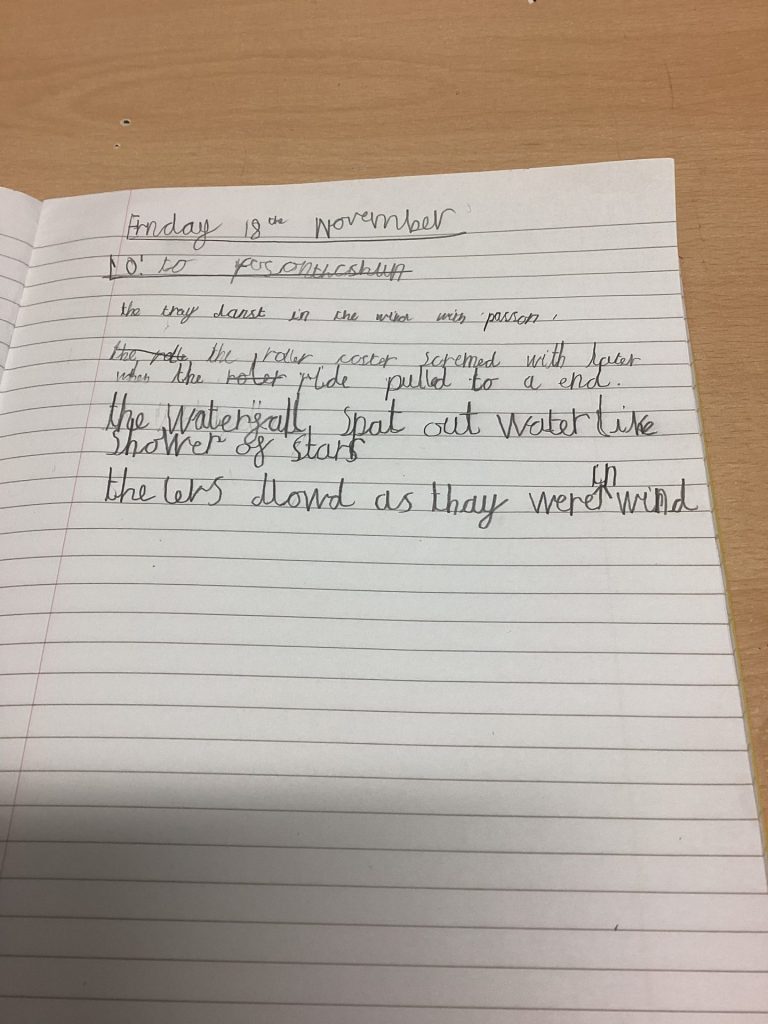 Friday 18th November
LO: to
the tray danst in the wind with passon.
the rolle the roller coster scremed with later
when the roler ride pulled to a end.
the Waterfall spat out water like
shower of stars
the levs as thay were in wind